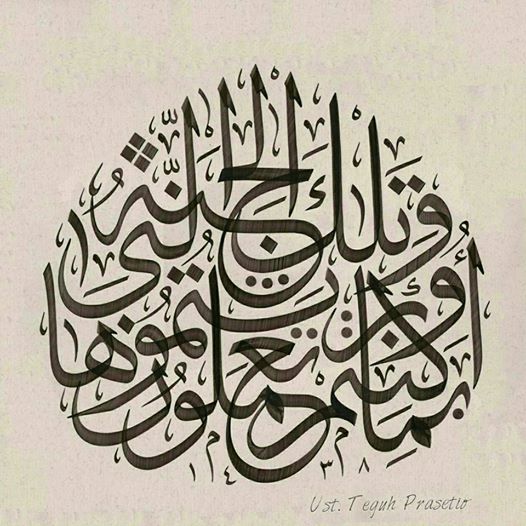 وَتِلْكَ الْجَنَّةُ الَّتِي
أُورِثْتُمُوهَا
بِمَا كُنْتُمْ تَعْمَلُونَ
١٤٣٨
Ust. Teguh Prasetio